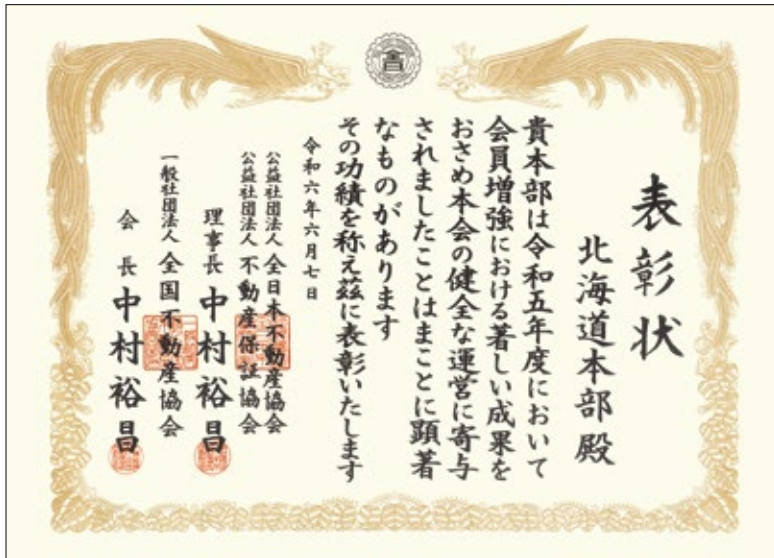 表彰状
北海道本部殿
貴本部は令和五年度において
会員増強における著しい成果を
おさめ本会の健全な運営に寄与
されましたことはまことに顕著
なものがあります
その功績を称え茲に表彰いたします
令和六年六月七日
公益社団法人 全日本不動産協会
公益社団法人 不動産保証協会
理事長 中村裕昌
一般社団法人 全国不動産協会
会長 中村裕昌